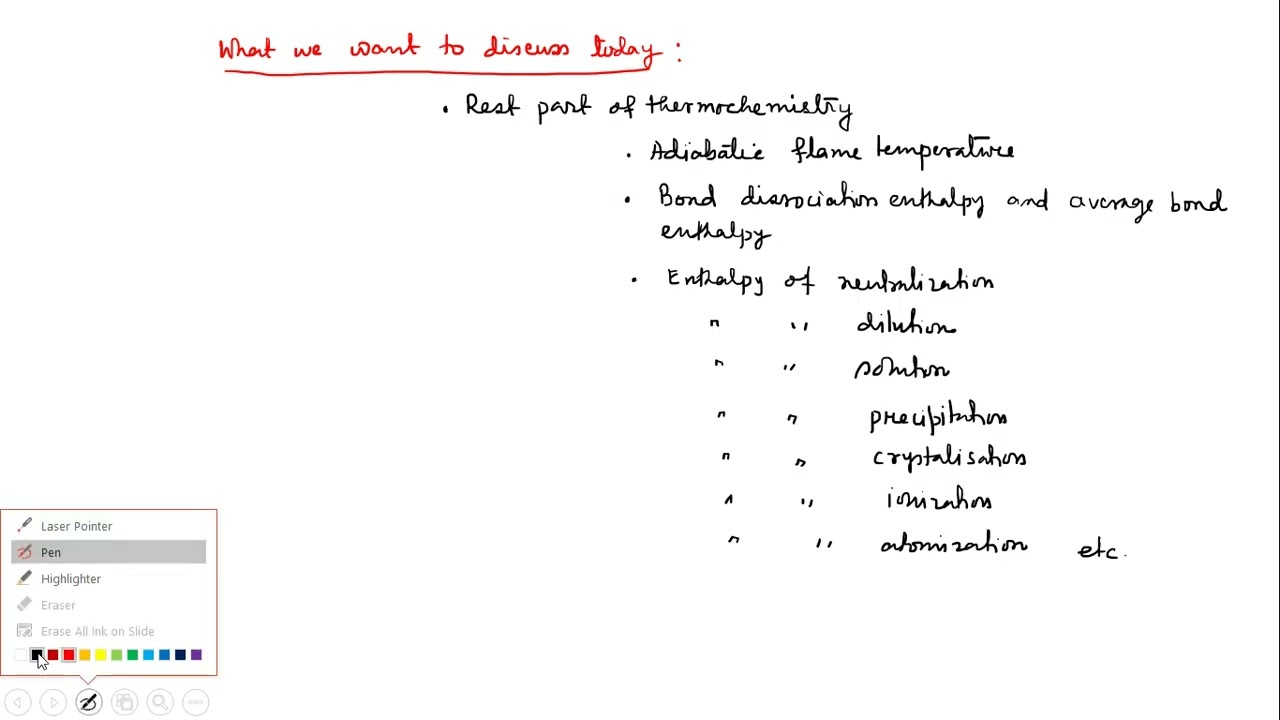 What we want to discuss today :
. Rest part of thermochemistry
. Adiabatic flame temperature
. Bond dissociation enthalpy and average bond
enthalpy
. Enthalpy of neutralization
" " dilution
" " solution
" " precipitation
" " crystalisation
" " ionization
" " atomization etc.
Laser Pointer
Pen
Highlighter
Eraser
Erase All Ink on Slide